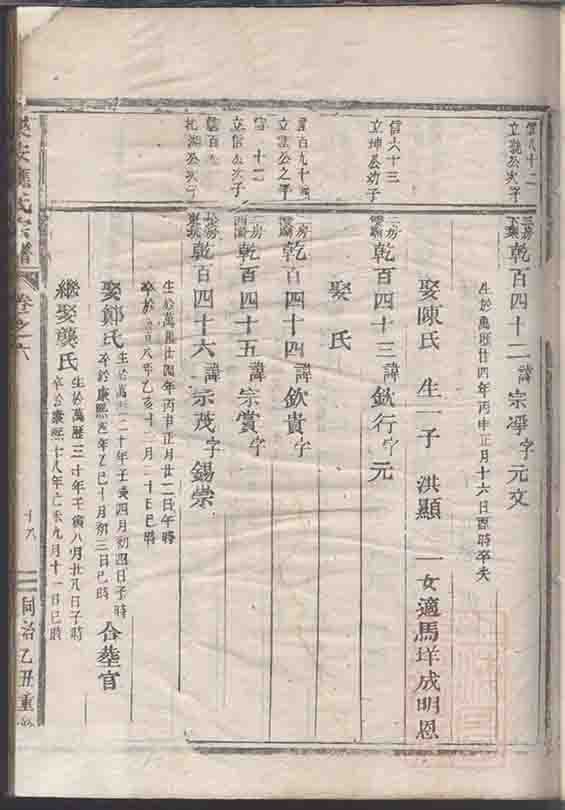 立 公次子
乾百四十二 諱宗凈字元文
生於萬歷廿四年丙申正月十六日酉時卒失
娶陳氏 生一子 洪顯 一女適馬垟成明恩
信六十三
立坤公幼子
二房
乾百四十三 諱欽行字元
娶 氏
百九十
立 公之子
房
乾百四十四 諱欽貴字
十二
立信公次子
二房
乾百四十五 諱宗賞字
信百九
公次子
乾百四十六 諱宗茂字錫崇
生於萬歷廿四年丙申正月廿二日午時
卒於 八年乙亥十二月二十日巳時
娶鄭氏 生於萬 二十年壬辰四月初四日子時
卒於康熙四年乙巳十月初三日巳時 合塟官
繼娶龔氏 生於萬歷三十年壬寅八月廿八日子時
卒於康熙十八年己未九月十一日巳時
樂安 氏宗譜 卷之六 十八 同治乙丑重